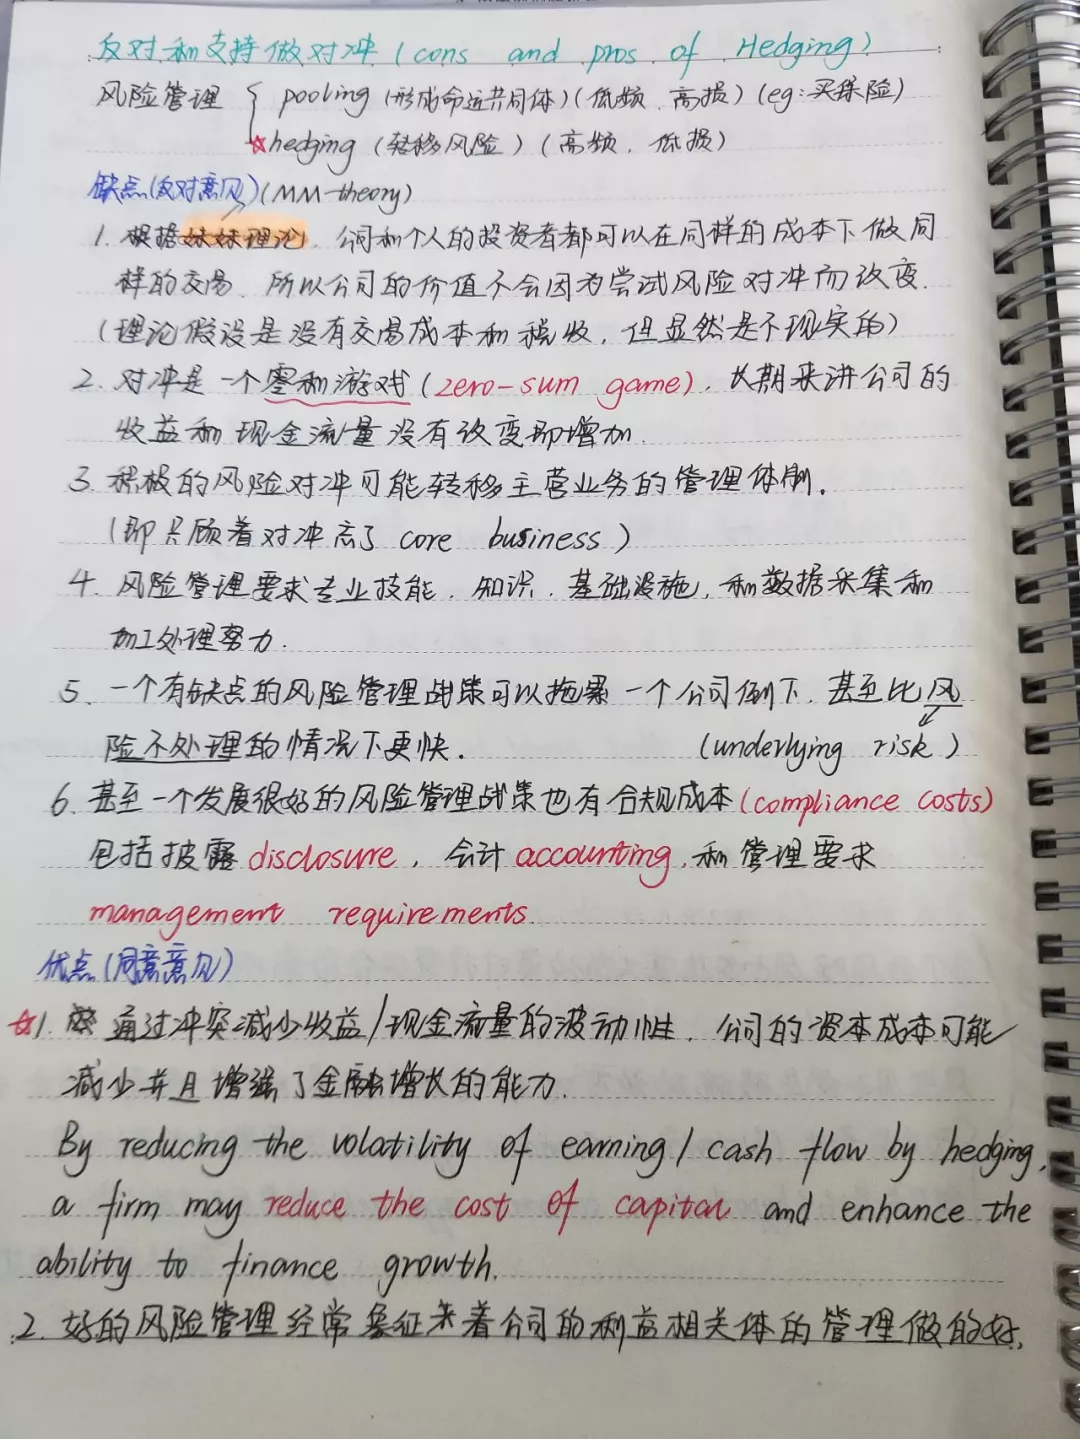 反对和支持做对冲 (cons and pros of Hedging)
风险管理 { pooling (形成命运共同体) (低频、高损) (eg:买保险)
☆hedging (转移风险) (高频、低损)
缺点(反对意见) (MM-theory)
1. 根据妹妹理论, 公司和个人的投资者都可以在同样的成本下做同
样的交易, 所以公司的价值不会因为尝试风险对冲而改变.
(理论假设是没有交易成本和税收, 但显然是不现实的)
2. 对冲是一个零和游戏 (zero-sum game), 长期来讲公司的
收益和现金流量没有改变即增加.
3. 积极的风险对冲可能转移主营业务的管理体制.
(即只顾着对冲高了 core business)
4. 风险管理要求专业技能、知识、基础设施, 和数据采集和
加工处理努力.
5. 一个有缺点的风险管理战策可以拖累一个公司倒下, 甚至比风
险不处理的情况下更快. (underlying risk)
6. 甚至一个发展很好的风险管理战策也有合规成本 (compliance costs)
包括披露 disclosure, 会计 accounting, 和管理要求
management requirements.
优点(同意意见)
☆1. 通过冲突减少收益/现金流量的波动性, 公司的资本成本可能
减少并且增强了金融增长的能力.
By reducing the volatility of earning / cash flow by hedging,
a firm may reduce the cost of capital and enhance the
ability to finance growth.
2. 好的风险管理经常象征来着公司的利益相关体的管理做的好,